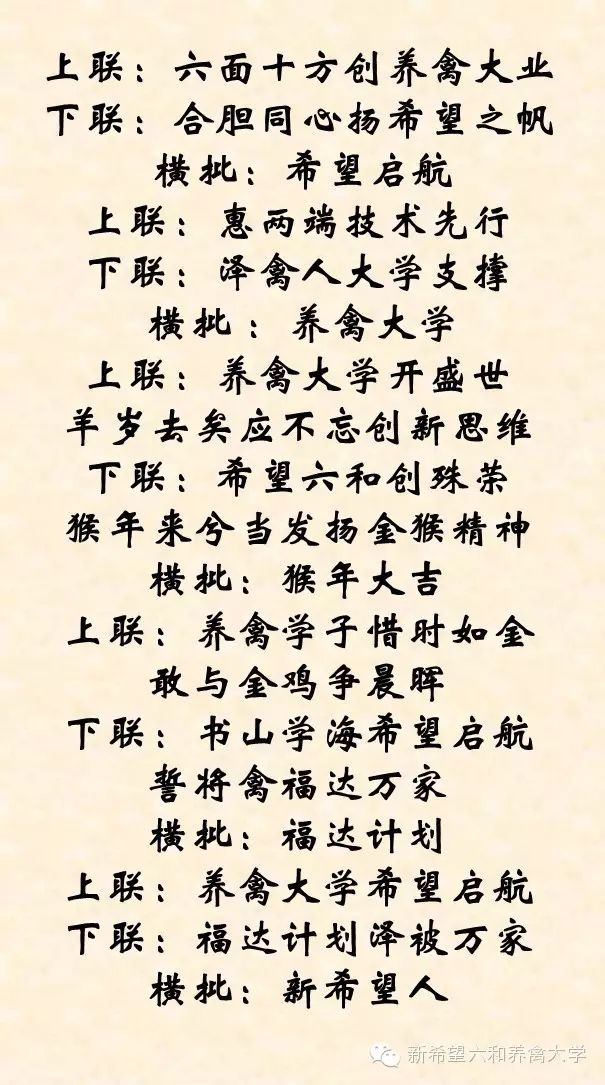 上联：六面十方创养禽大业
下联：合胆同心扬希望之帆
横批：希望启航
上联：惠两端技术先行
下联：泽禽人大学支撑
横批：养禽大学
上联：养禽大学开盛世
羊岁去矣应不忘创新思维
下联：希望六和创殊荣
猴年来兮当发扬金猴精神
横批：猴年大吉
上联：养禽学子惜时如金
敢与金鸡争晨晖
下联：书山学海希望启航
誓将禽福达万家
横批：福达计划
上联：养禽大学希望启航
下联：福达计划泽被万家
横批：新希望人
新希望六和养禽大学